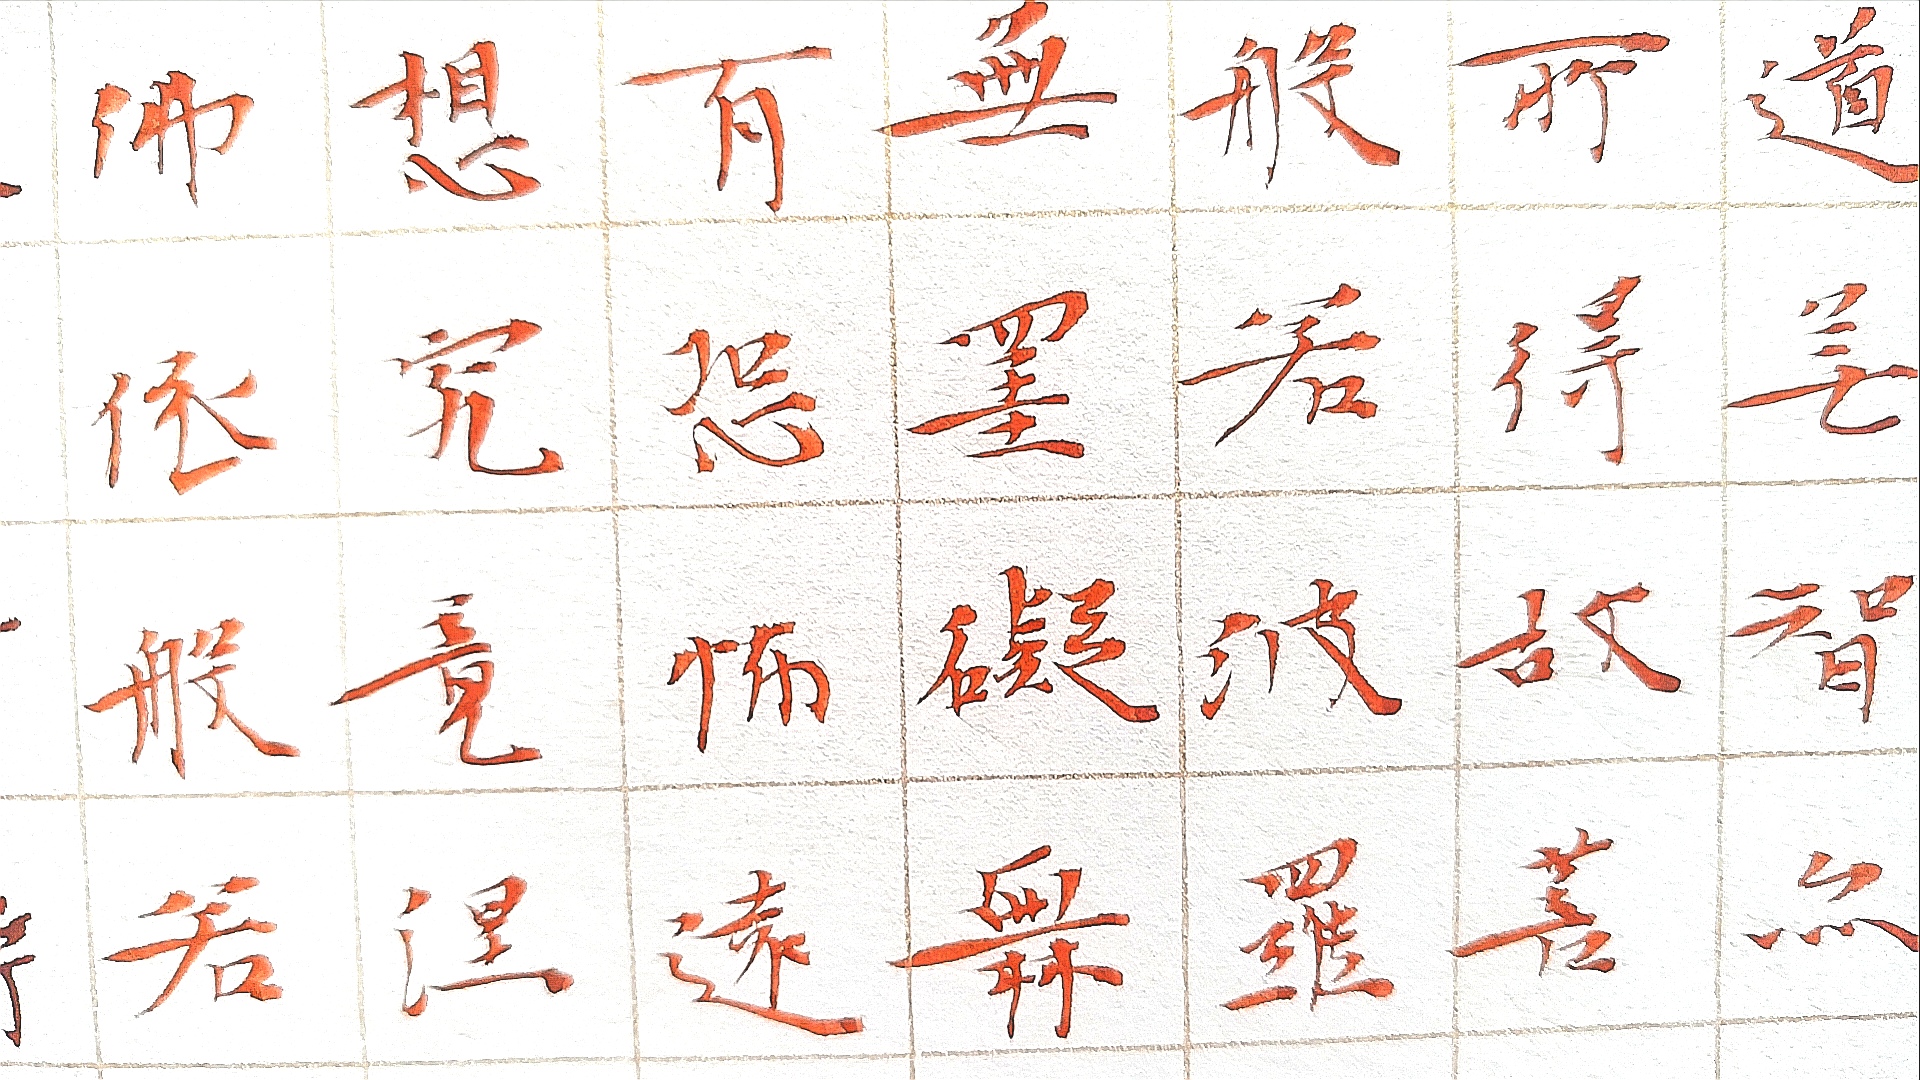 道無智亦
所得故菩
般若波羅
無罣礙無
有恐怖遠
想究竟涅
佛依般若